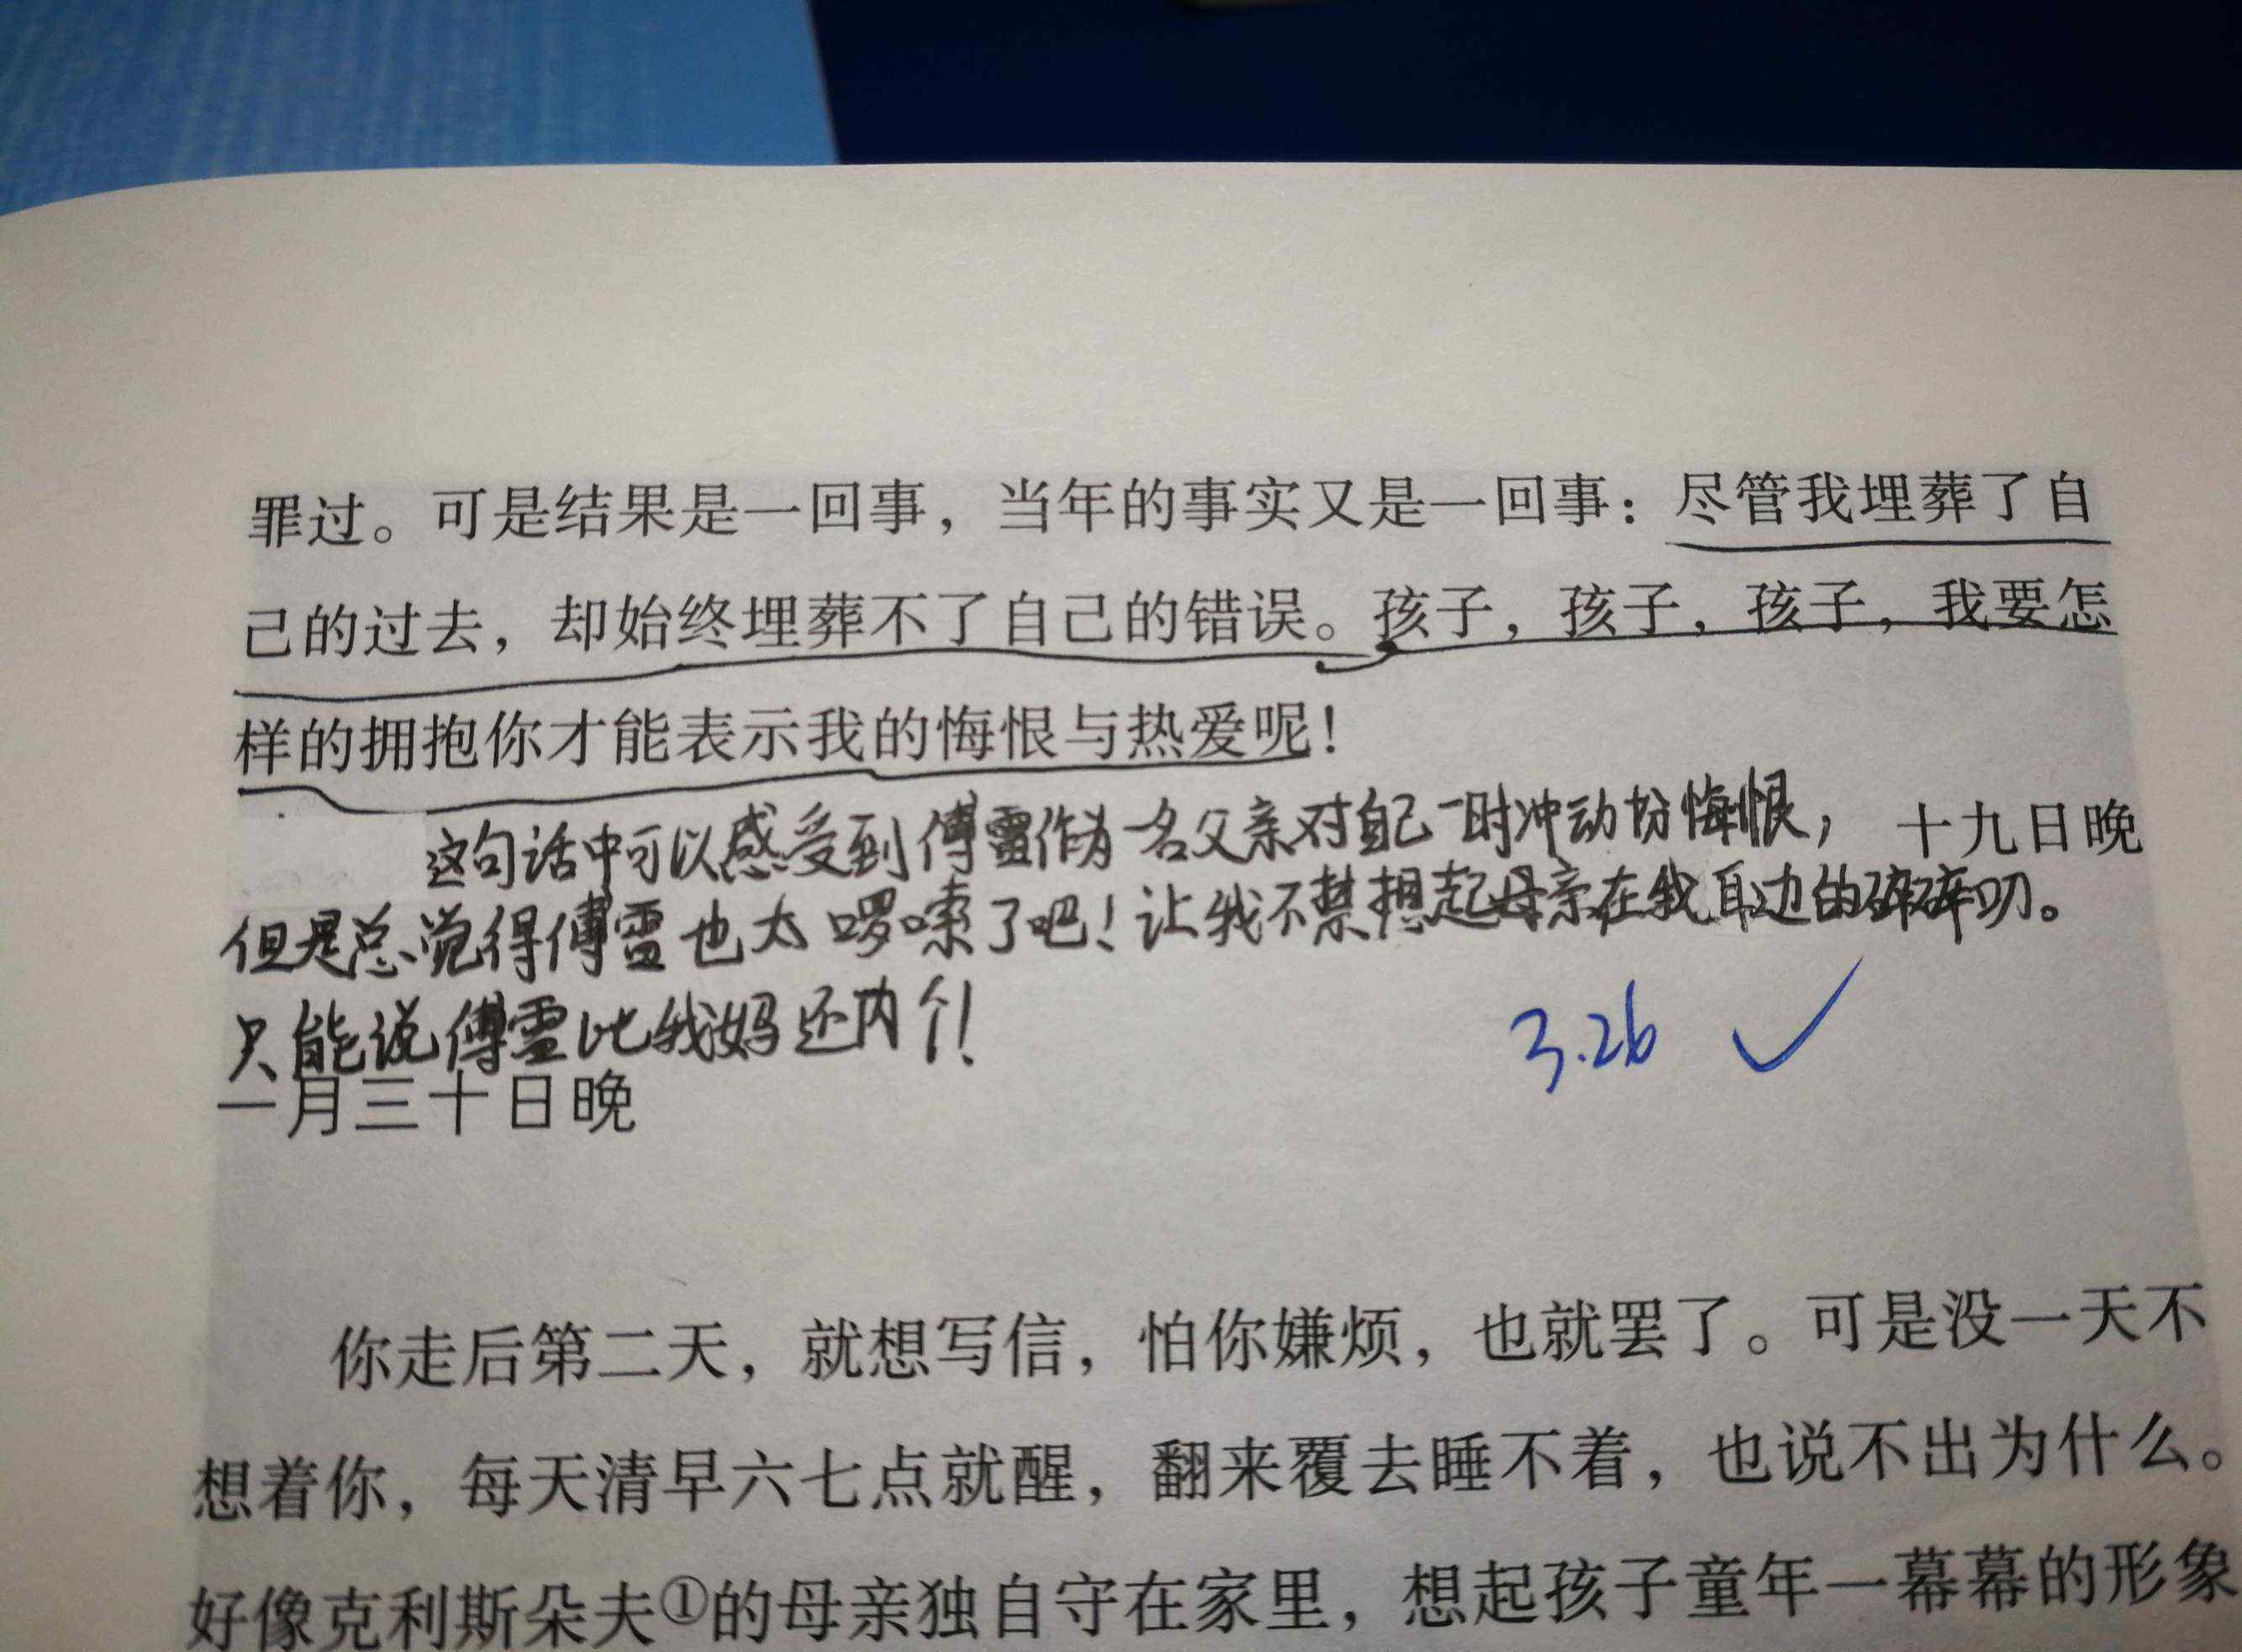 罪过。可是结果是一回事，当年的事实又是一回事：尽管我埋葬了自
己的过去，却始终埋葬不了自己的错误。孩子，孩子，孩子，我要怎
样的拥抱你才能表示我的悔恨与热爱呢！
这句话中可以感受到傅雷作为一名父亲对自己一时冲动的悔恨，
十九日晚
但是总觉得傅雷也太啰嗦了吧！让我不禁想起母亲在我耳边的碎碎叨。
只能说傅雷比我妈还内个！
3.26
一月三十日晚
你走后第二天，就想写信，怕你嫌烦，也就罢了。可是没一天不
想着你，每天清早六七点就醒，翻来覆去睡不着，也说不出为什么。
好像克利斯朵夫①的母亲独自守在家里，想起孩子童年一幕幕的形象